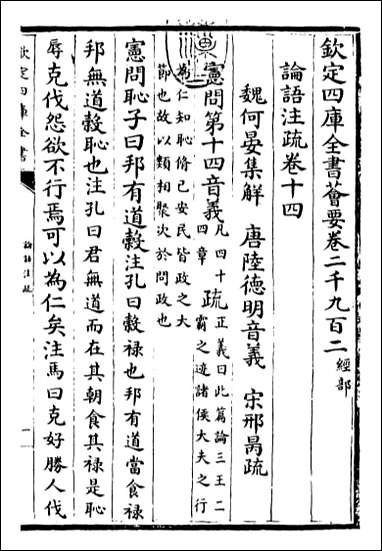 欽定四庫全書薈要卷二千九百二 經部
論語注疏卷十四
魏何晏集解 唐陸德明音義 宋邢昺疏
憲問第十四音義 凡四十四章 疏 正義曰此篇論三王二霸之迹諸侯大夫之行
為仁知恥修己安民皆政之大節也故以類相聚次於問政也
憲問恥子曰邦有道穀注孔曰穀祿也邦有道當食祿
邦無道穀恥也注孔曰君無道而在其朝食其祿是恥
辱克伐怨欲不行焉可以為仁矣注馬曰克好勝人伐
欽定四庫全書
論語注疏
一